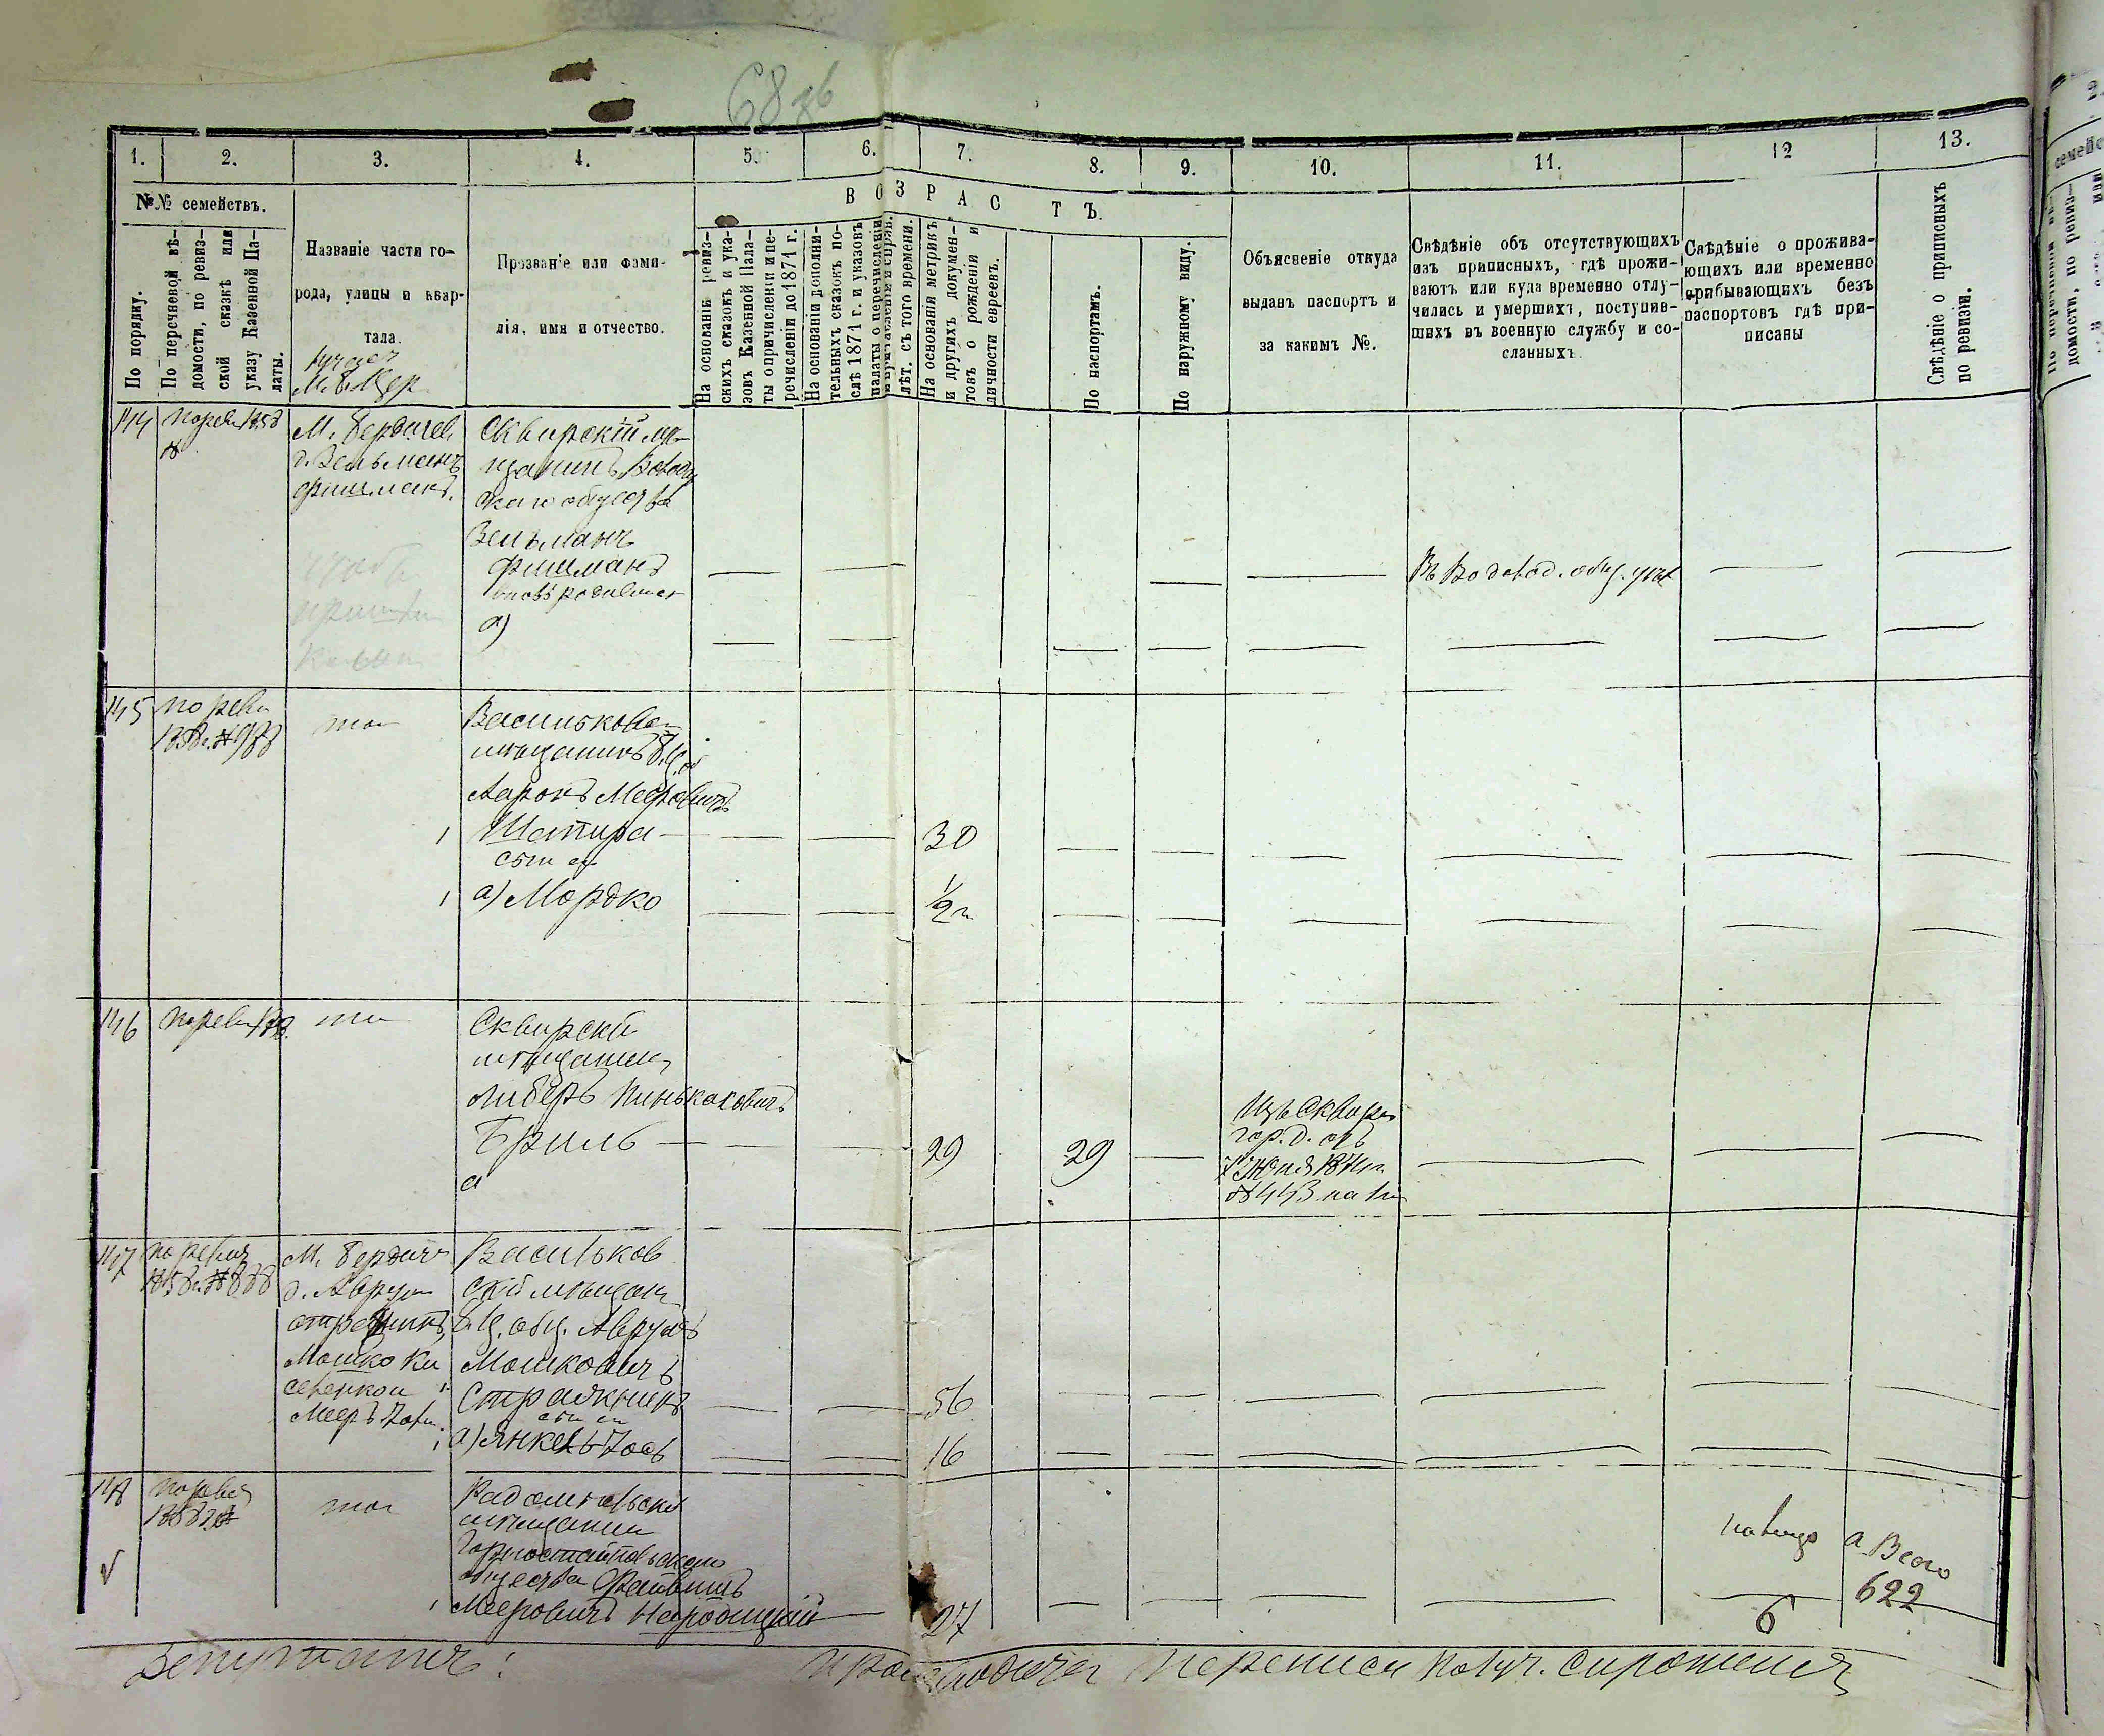 68 зв
1. 2. 3. 4. 5. 6. 7. 8. 9. 10. 11. 12 13.
№№ семействъ.
По порядку.
По перечневой вѣ-
домости, по ревиз-
ской сказкѣ или
указу Казенной Па-
латы.
Названіе части го-
рода, улицы и квар-
тала.
М. Б. Цер
Прозваніе или фами-
лія, имя и отчество.
ВОЗРАСТЪ.
На основаніи ревиз-
скихъ сказокъ и ука-
зовъ Казенной Пала-
ты о причисленіи и пе-
речисленіи до 1871 г.
На основаніи дополни-
тельныхъ сказокъ по-
слѣ 1871 г. и указовъ
палаты о перечисленіи
лѣт. съ того времени.
На основаніи метрикъ
и другихъ докумен-
товъ о рожденіи и
личности евреевъ.
По паспортамъ.
По наружному виду.
Объясненіе откуда
выданъ паспортъ и
за какимъ №.
Свѣдѣніе объ отсутствующихъ
изъ приписныхъ, гдѣ прожи-
ваютъ или куда временно отлу-
чились и умершихъ, поступив-
шихъ въ военную службу и со-
сланныхъ.
Свѣдѣніе о прожива-
ющихъ или временно
прибывающихъ безъ
паспортовъ гдѣ при-
писаны
Свѣдѣніе о приписныхъ
по ревизіи.
144
по рев. 1858
№
М. Бердичев.
д. Вельманъ
Фишманъ.
Сквирскій мѣ-
щанинъ Волод
скаго общества
Вельманъ
Фишманъ
вновь родившіеся
а)
Въ Володов. общ. учт
145
по реви
1858 г. № 988
тож
Васильков
мѣщанинъ Б. Ц. об
Ааронъ Мееровичъ
1 Шапира 30
сын ег
1 а) Мордко 1/2 г.
146
по реви 1858
тож
Сквирскій
мѣщанин
Либеръ Пинькасовичъ
Бриль 29 29
а
Изъ Сквирс
гор. Д. отъ
7 Июня 1874 г.
№ 443 на 1 г
147
по ревиз
1858 г. № 888
М. Бердич
д. Аврум
Стражникъ,
Мошко Ки
Мееръ
Васильков
скій мѣщан
Б. Ц. общ. Аврумъ
Мошковичъ
1 Стражникъ 56
сын ег
1 а) Янкель Іось 16
148
по ревиз
1858 г. №
тож
Радомысльскій
мѣщанин
Горностайпольскаго
общества Файвишъ
1 Мееровичъ Народицкій 27
на лицо 6
а Всего
622
Депутатъ:
производилъ перепись получ. Сиротенко